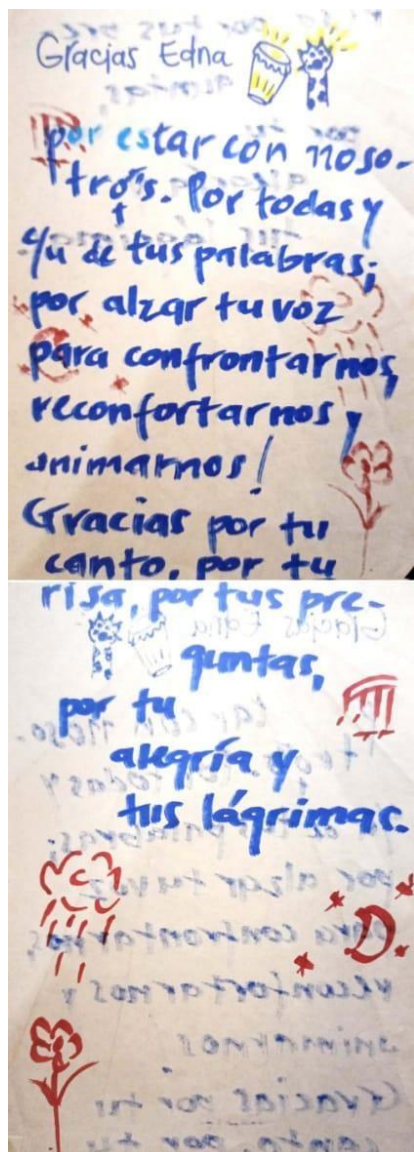 Gracias Edna
por estar con noso-
trøs. Por todas y
c/u de tus palabras;
por alzar tu voz
para confrontarnos,
reconfortarnos y
animarnos!
Gracias por tu
canto, por tu
risa, por tus pre-
guntas,
por tu
alegría y
tus lágrimas.